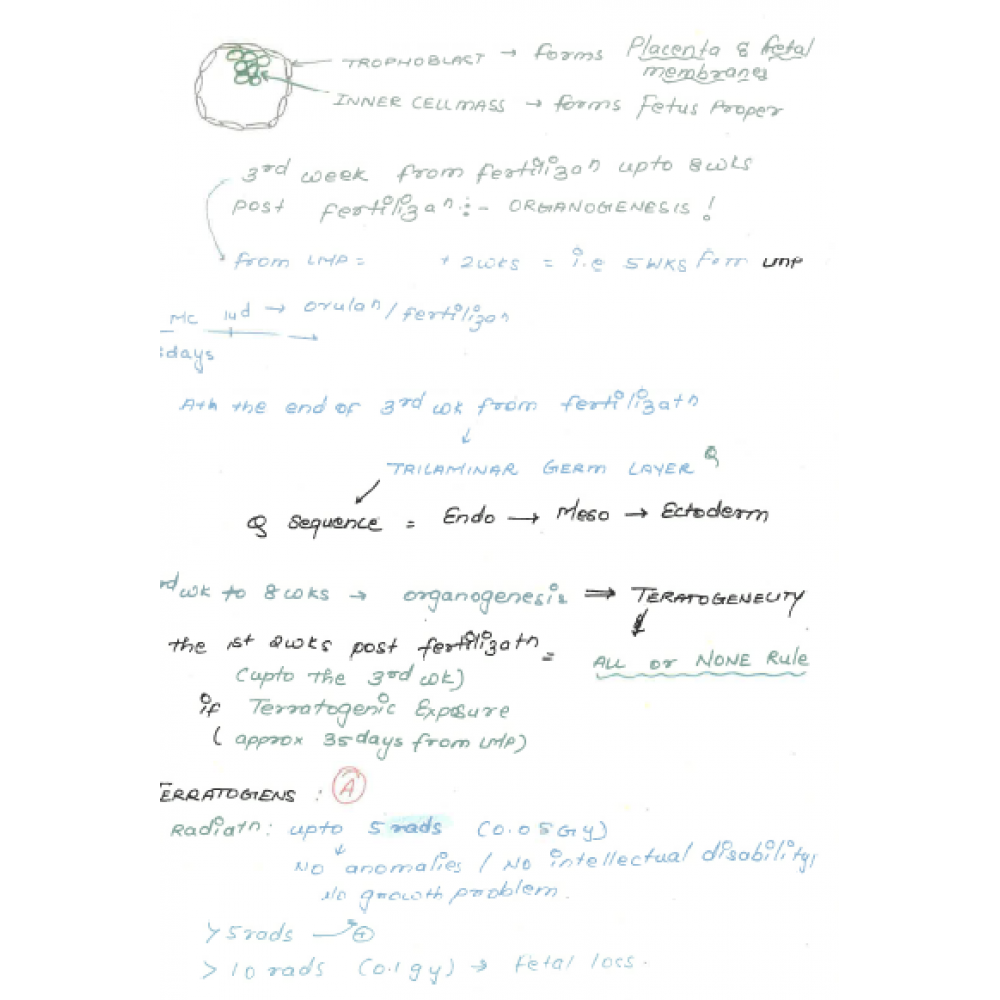 TROPHOBLAST → forms Placenta & fetal
membranes
INNER CELL MASS → forms Fetus Proper
3rd week from fertilizan upto 8wks
post fertilizan :- ORGANOGENESIS !
from LMP = + 2wks = i.e 5 WKS From LMP
MC 14d → ovulan / fertilizan
days
Ath the end of 3rd wk from fertilizatn
↓
TRILAMINAR GERM LAYER Q
Q sequence = Endo → Meso → Ectoderm
rd wk to 8 wks → organogenesis ⇒ TERATOGENECITY
the 1st 2wks post fertilizatn = ALL or NONE Rule
(upto the 3rd wk)
if Terratogenic Exposure
( approx 35 days from LMP)
TERRATOGENS : A
Radiatn : upto 5 rads (0.05Gy)
↓
No anomalies / No intellectual disability,
No growth problem.
> 5 rads → +
> 10 rads (0.1 gy) → fetal loss.